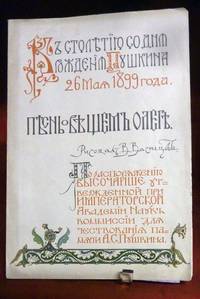 Къ столѣтію со дня
рожденія Пушкина
26 Мая 1899 года.
Пѣснь о вѣщемъ Олегѣ.
Рисовалъ В. Васнецовъ
По распоряженію
Высочайше ут-
вержденной при
Императорской
Академіи Наукъ
Коммиссіи для
чествованія па-
мяти А.С. Пушкина.